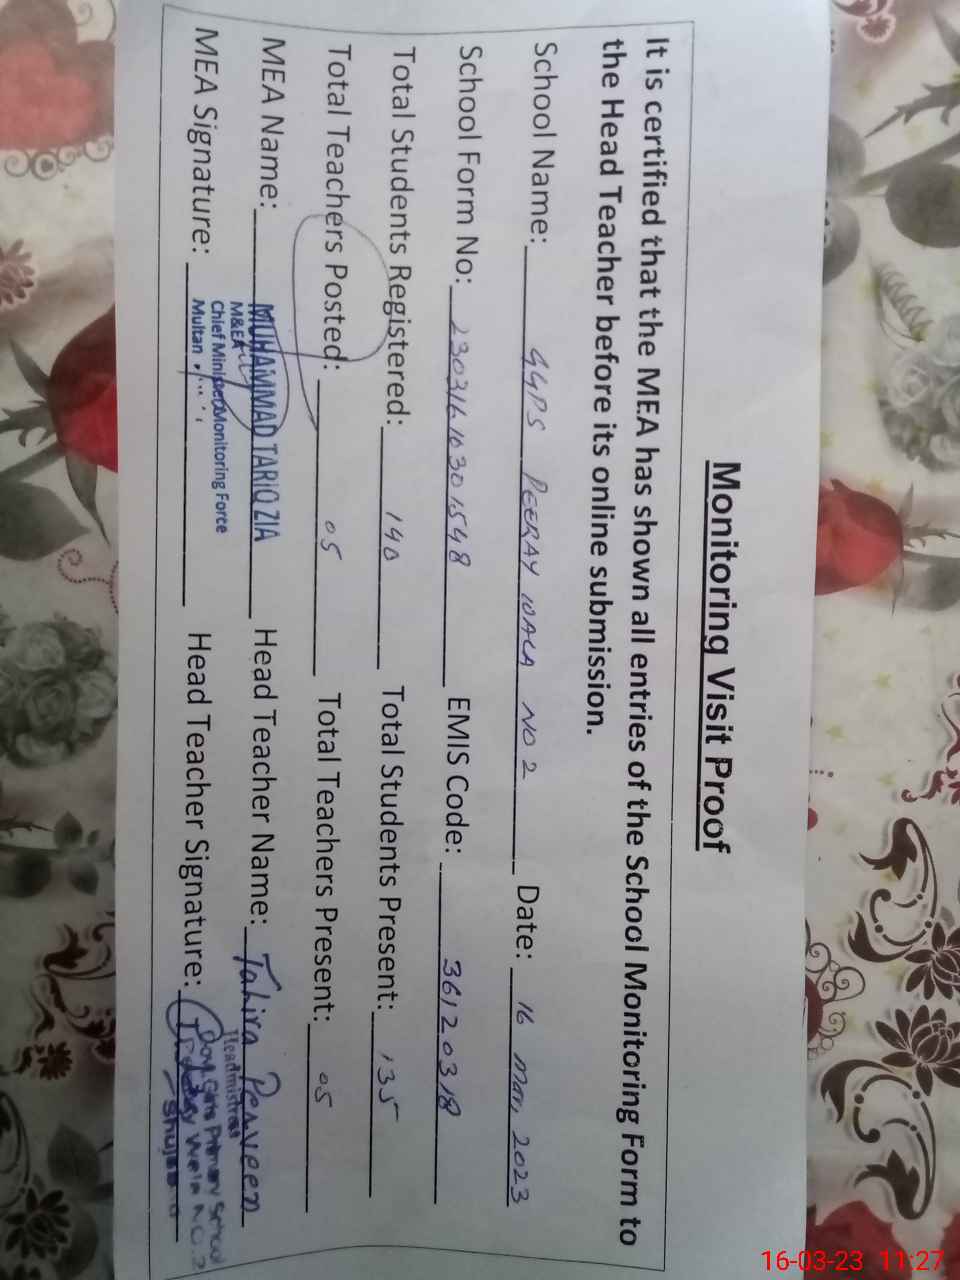 Monitoring Visit Proof
It is certified that the MEA has shown all entries of the School Monitoring Form to
the Head Teacher before its online submission.
School Name: GGPS PEERAY WALA NO 2 Date: 16 Mar, 2023
School Form No: 23031610301548 EMIS Code: 36120318
Total Students Registered: 140 Total Students Present: 135
Total Teachers Posted: 05 Total Teachers Present: 05
MEA Name: MUHAMMAD TARIQ ZIA Head Teacher Name: Tahira Perveen
M&EA
Chief Minister Monitoring Force
Multan
MEA Signature: Head Teacher Signature:
Headmistress
Govt Girls Primary School
Wala No.2
16-03-23 11:27